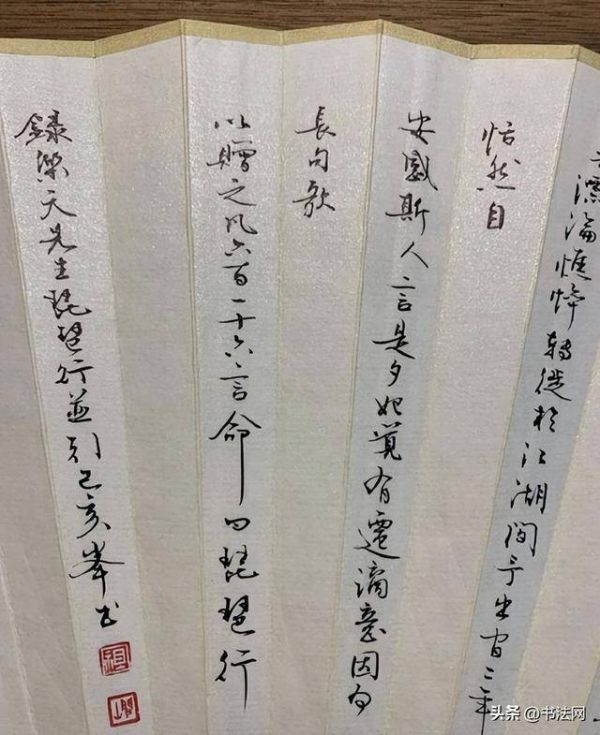 漂淪憔悴轉徙於江湖間予出官二年
恬然自
安感斯人言是夕始覺有遷謫意因為
長句歌
以贈之凡六百一十六言命曰琵琶行
錄樂天先生琵琶行並引己亥峯書
头条 @书法网